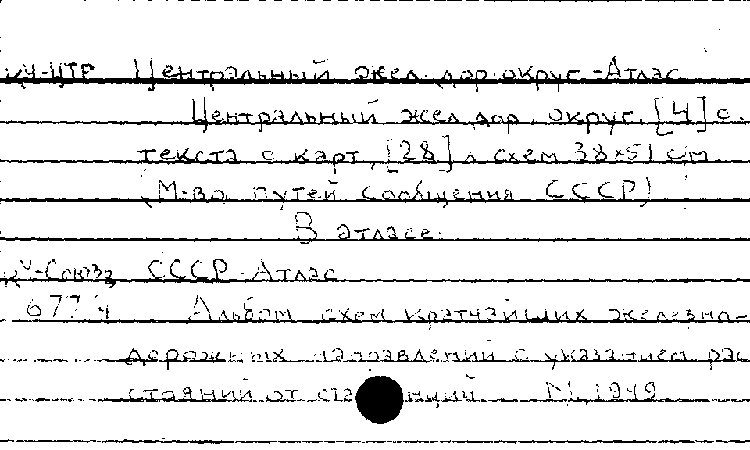 КЧ-ЦТР Центральный жел. дор. округ - Атлас
Центральный жел. дор. округ. [4] с.
текста с карт, [28] л схем 38x51 см.
(М-во путей сообщения СССР)
В атласе:
КЧ-Союз СССР - Атлас
677 Ч Альбом схем кратчайших железно-
дорожных направлений с указанием рас
стояний от станций М. 1949